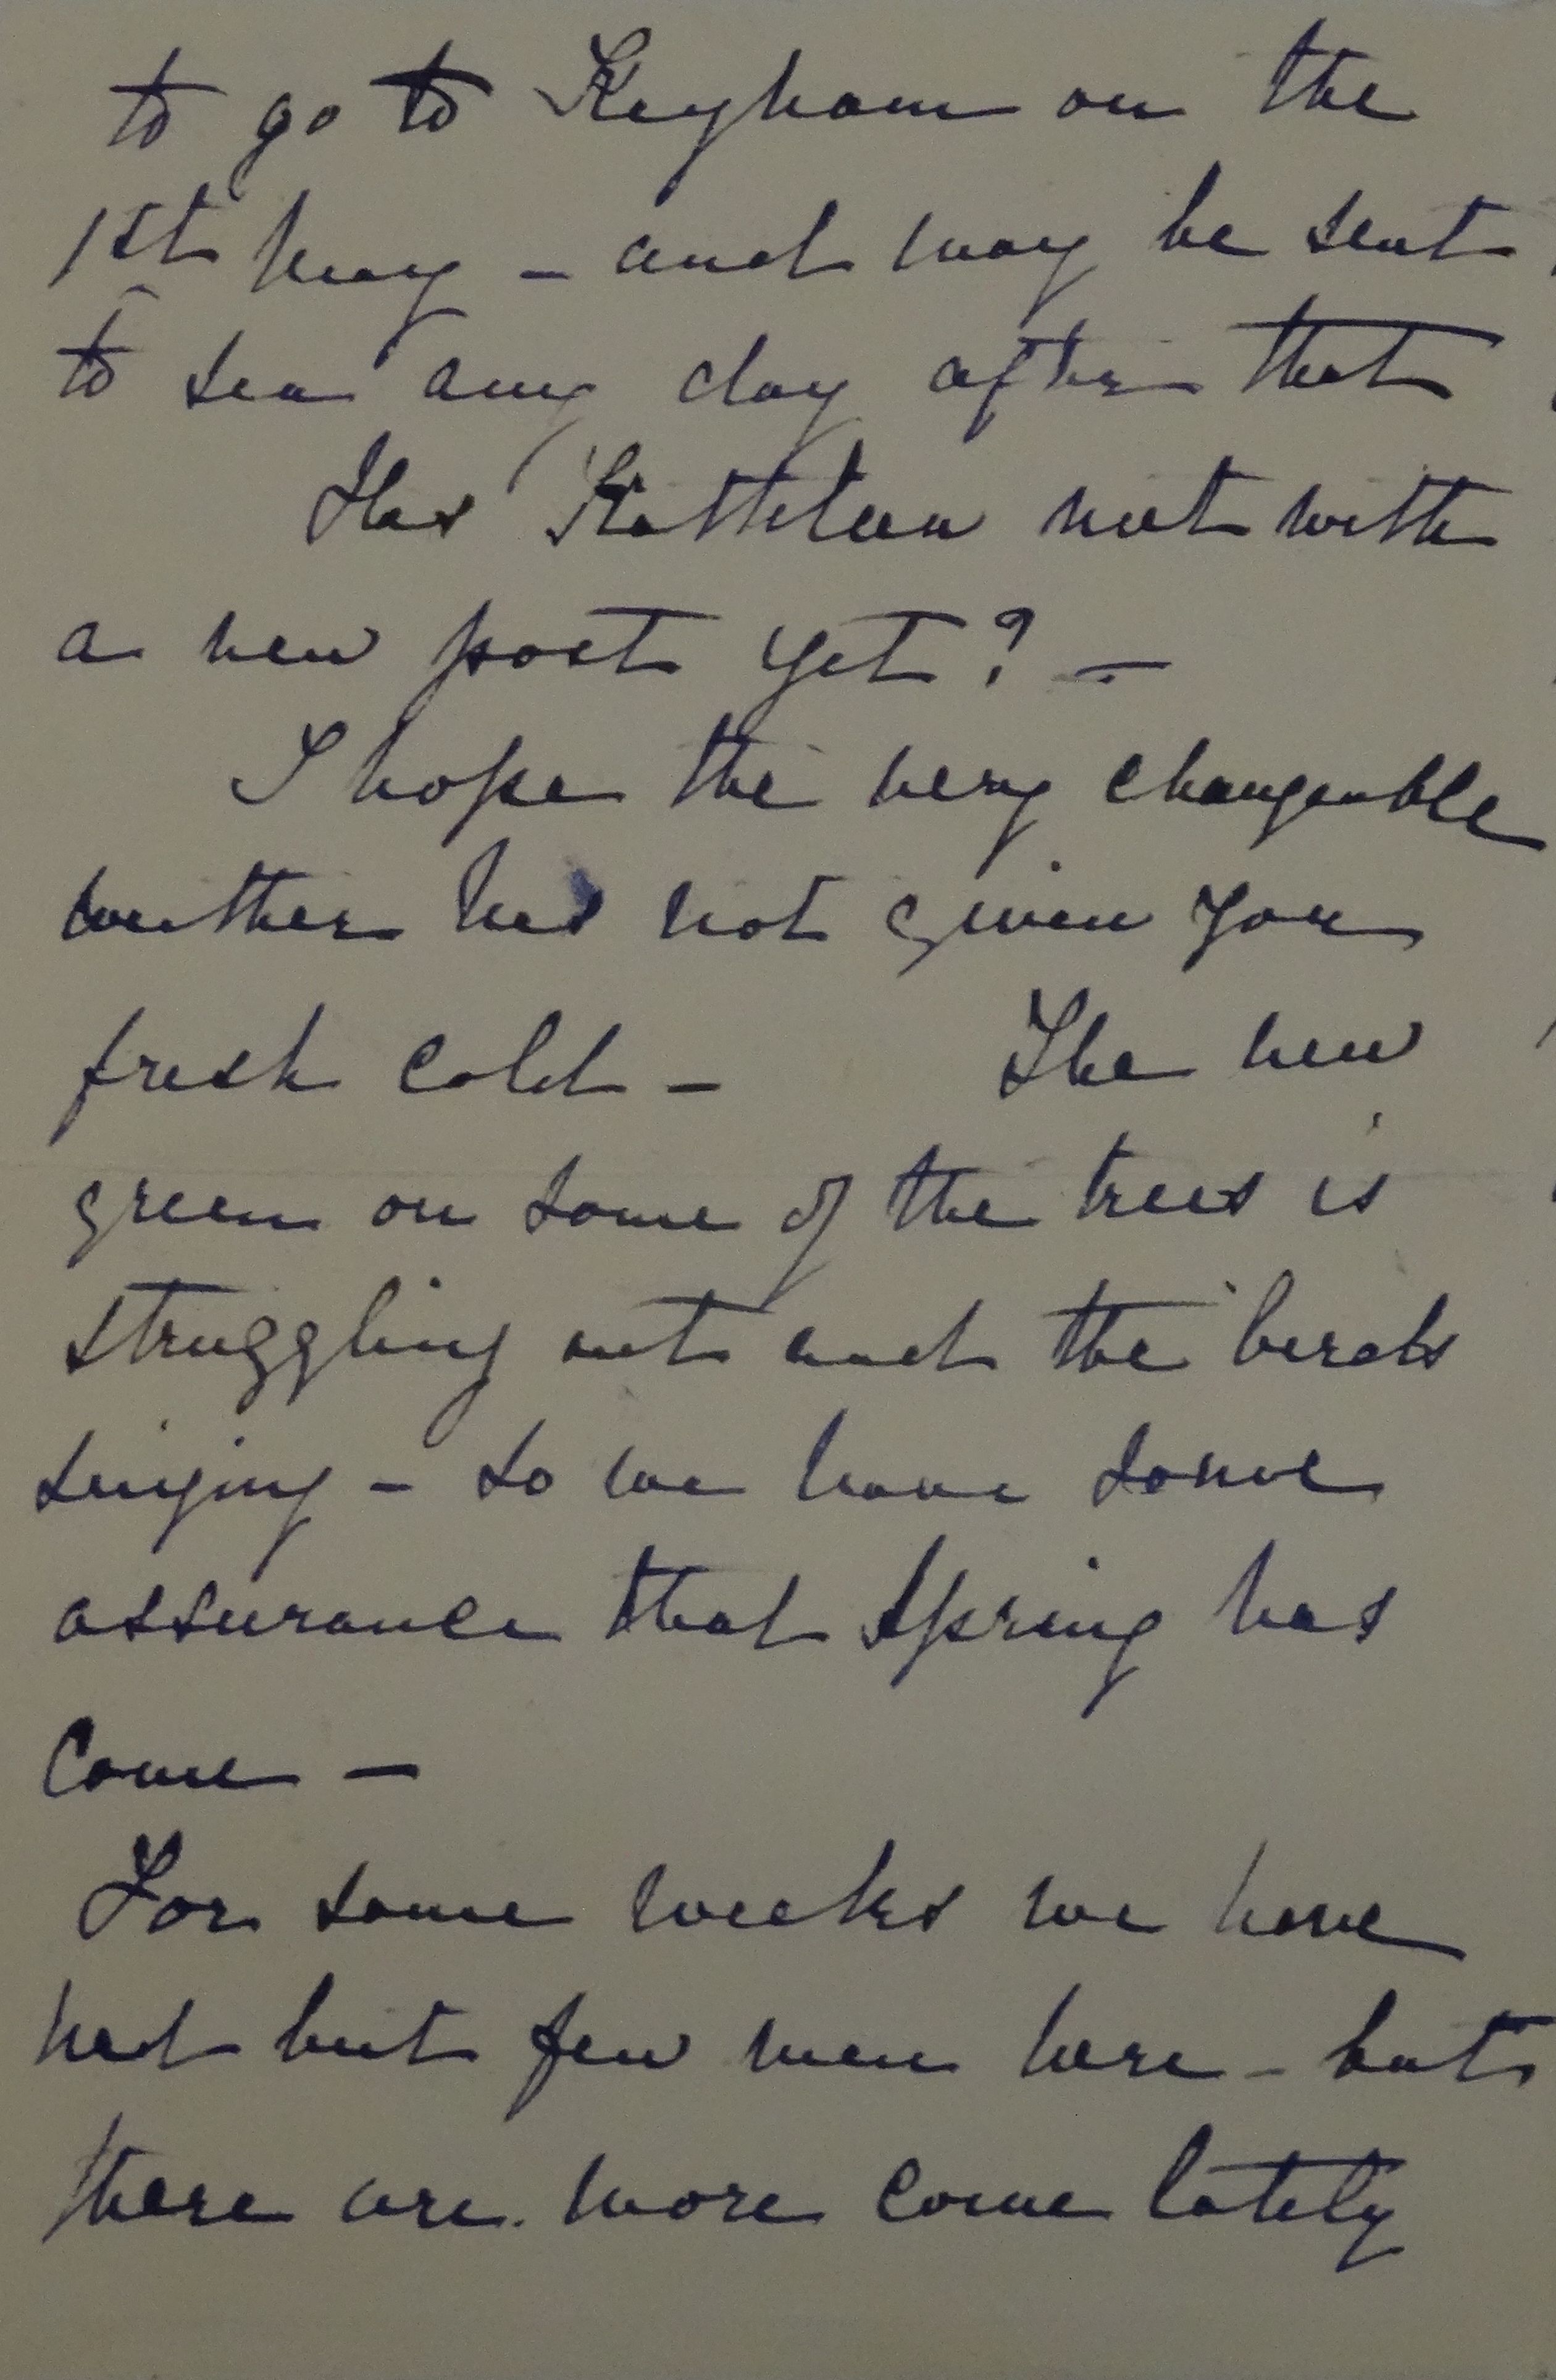 to go to Keyham on the
1st May - and may be sent
to sea any day after that
Has Kathleen met with
a new post yet? -
I hope the very changeable
weather has not given you
fresh cold - The new
green on some of the trees is
struggling out and the birds
singing - so we have some
assurance that Spring has
come -
For some weeks we have
had but few men here - but
there are more come lately